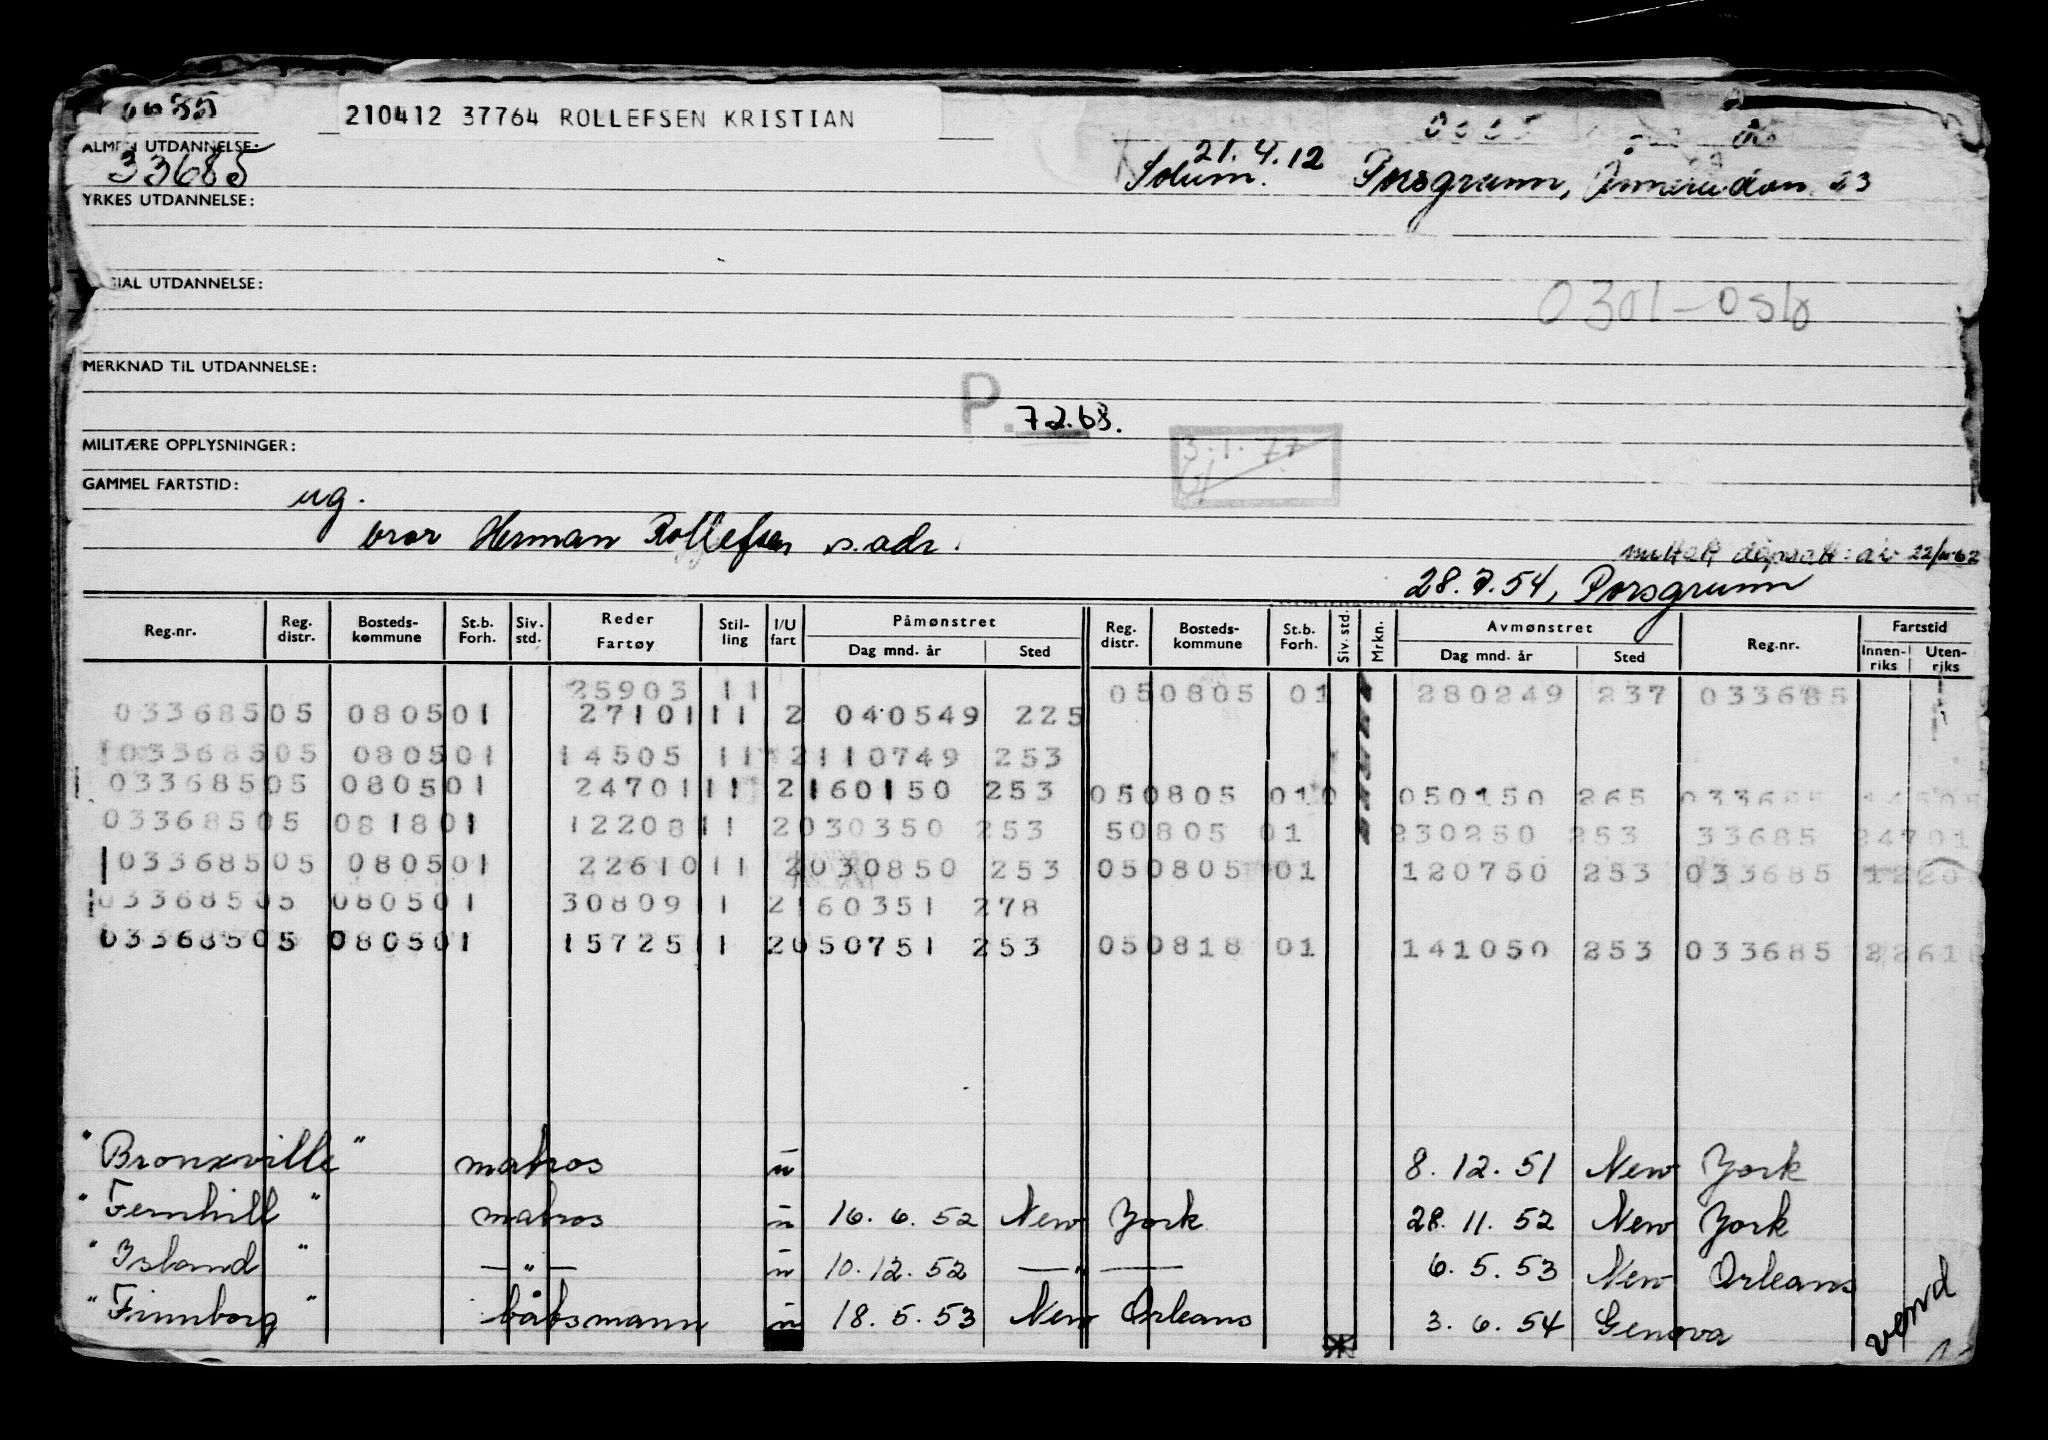 210412 37764 ROLLEFSEN KRISTIAN
ALMEN UTDANNELSE:
33685
21.4.12
Solum. Porsgrunn, 23
YRKES UTDANNELSE:
SIAL UTDANNELSE:
0301-Oslo
MERKNAD TIL UTDANNELSE:
P. 7268.
MILITÆRE OPPLYSNINGER:
3.1.77
GAMMEL FARTSTID: ug.
bror Herman Rollefsen s. adr.
22/11-62
28.7.54, Porsgrunn
Reg.nr. Reg. distr. Bosteds-kommune St.b. Forh. Siv. std. Reder Fartøy Stil-ling I/U fart Påmønstret Dag mnd. år Sted Reg. distr. Bosteds-kommune St.b. Forh. Siv. std. Mrkn. Avmønstret Dag mnd. år Sted Reg.nr. Fartstid Innen-riks Uten-riks
25903 11 050805 01 280249 237 033685
03368505 080501 27101 11 2 040549 225
03368505 080501 14505 11 2 110749 253
03368505 080501 24701 11 2 160150 253 050805 010 050150 265 033685 14505
03368505 081801 12208 11 2 030350 253 50805 01 230250 253 33685 24701
03368505 080501 22610 11 2 030850 253 050805 01 120750 253 033685 1220
03368505 080501 30809 11 2 160351 278
03368505 080501 15725 11 2 050751 253 050818 01 141050 253 033685 2261
"Bronxville" matros u 8.12.51 New York
"Fernhill" matros u 16.6.52 New York 28.11.52 New York
"Island" —"— u 10.12.52 —"— 6.5.53 New Orleans
"Finnborg" båtsmann u 18.5.53 New Orleans 3.6.54 Genova
vend